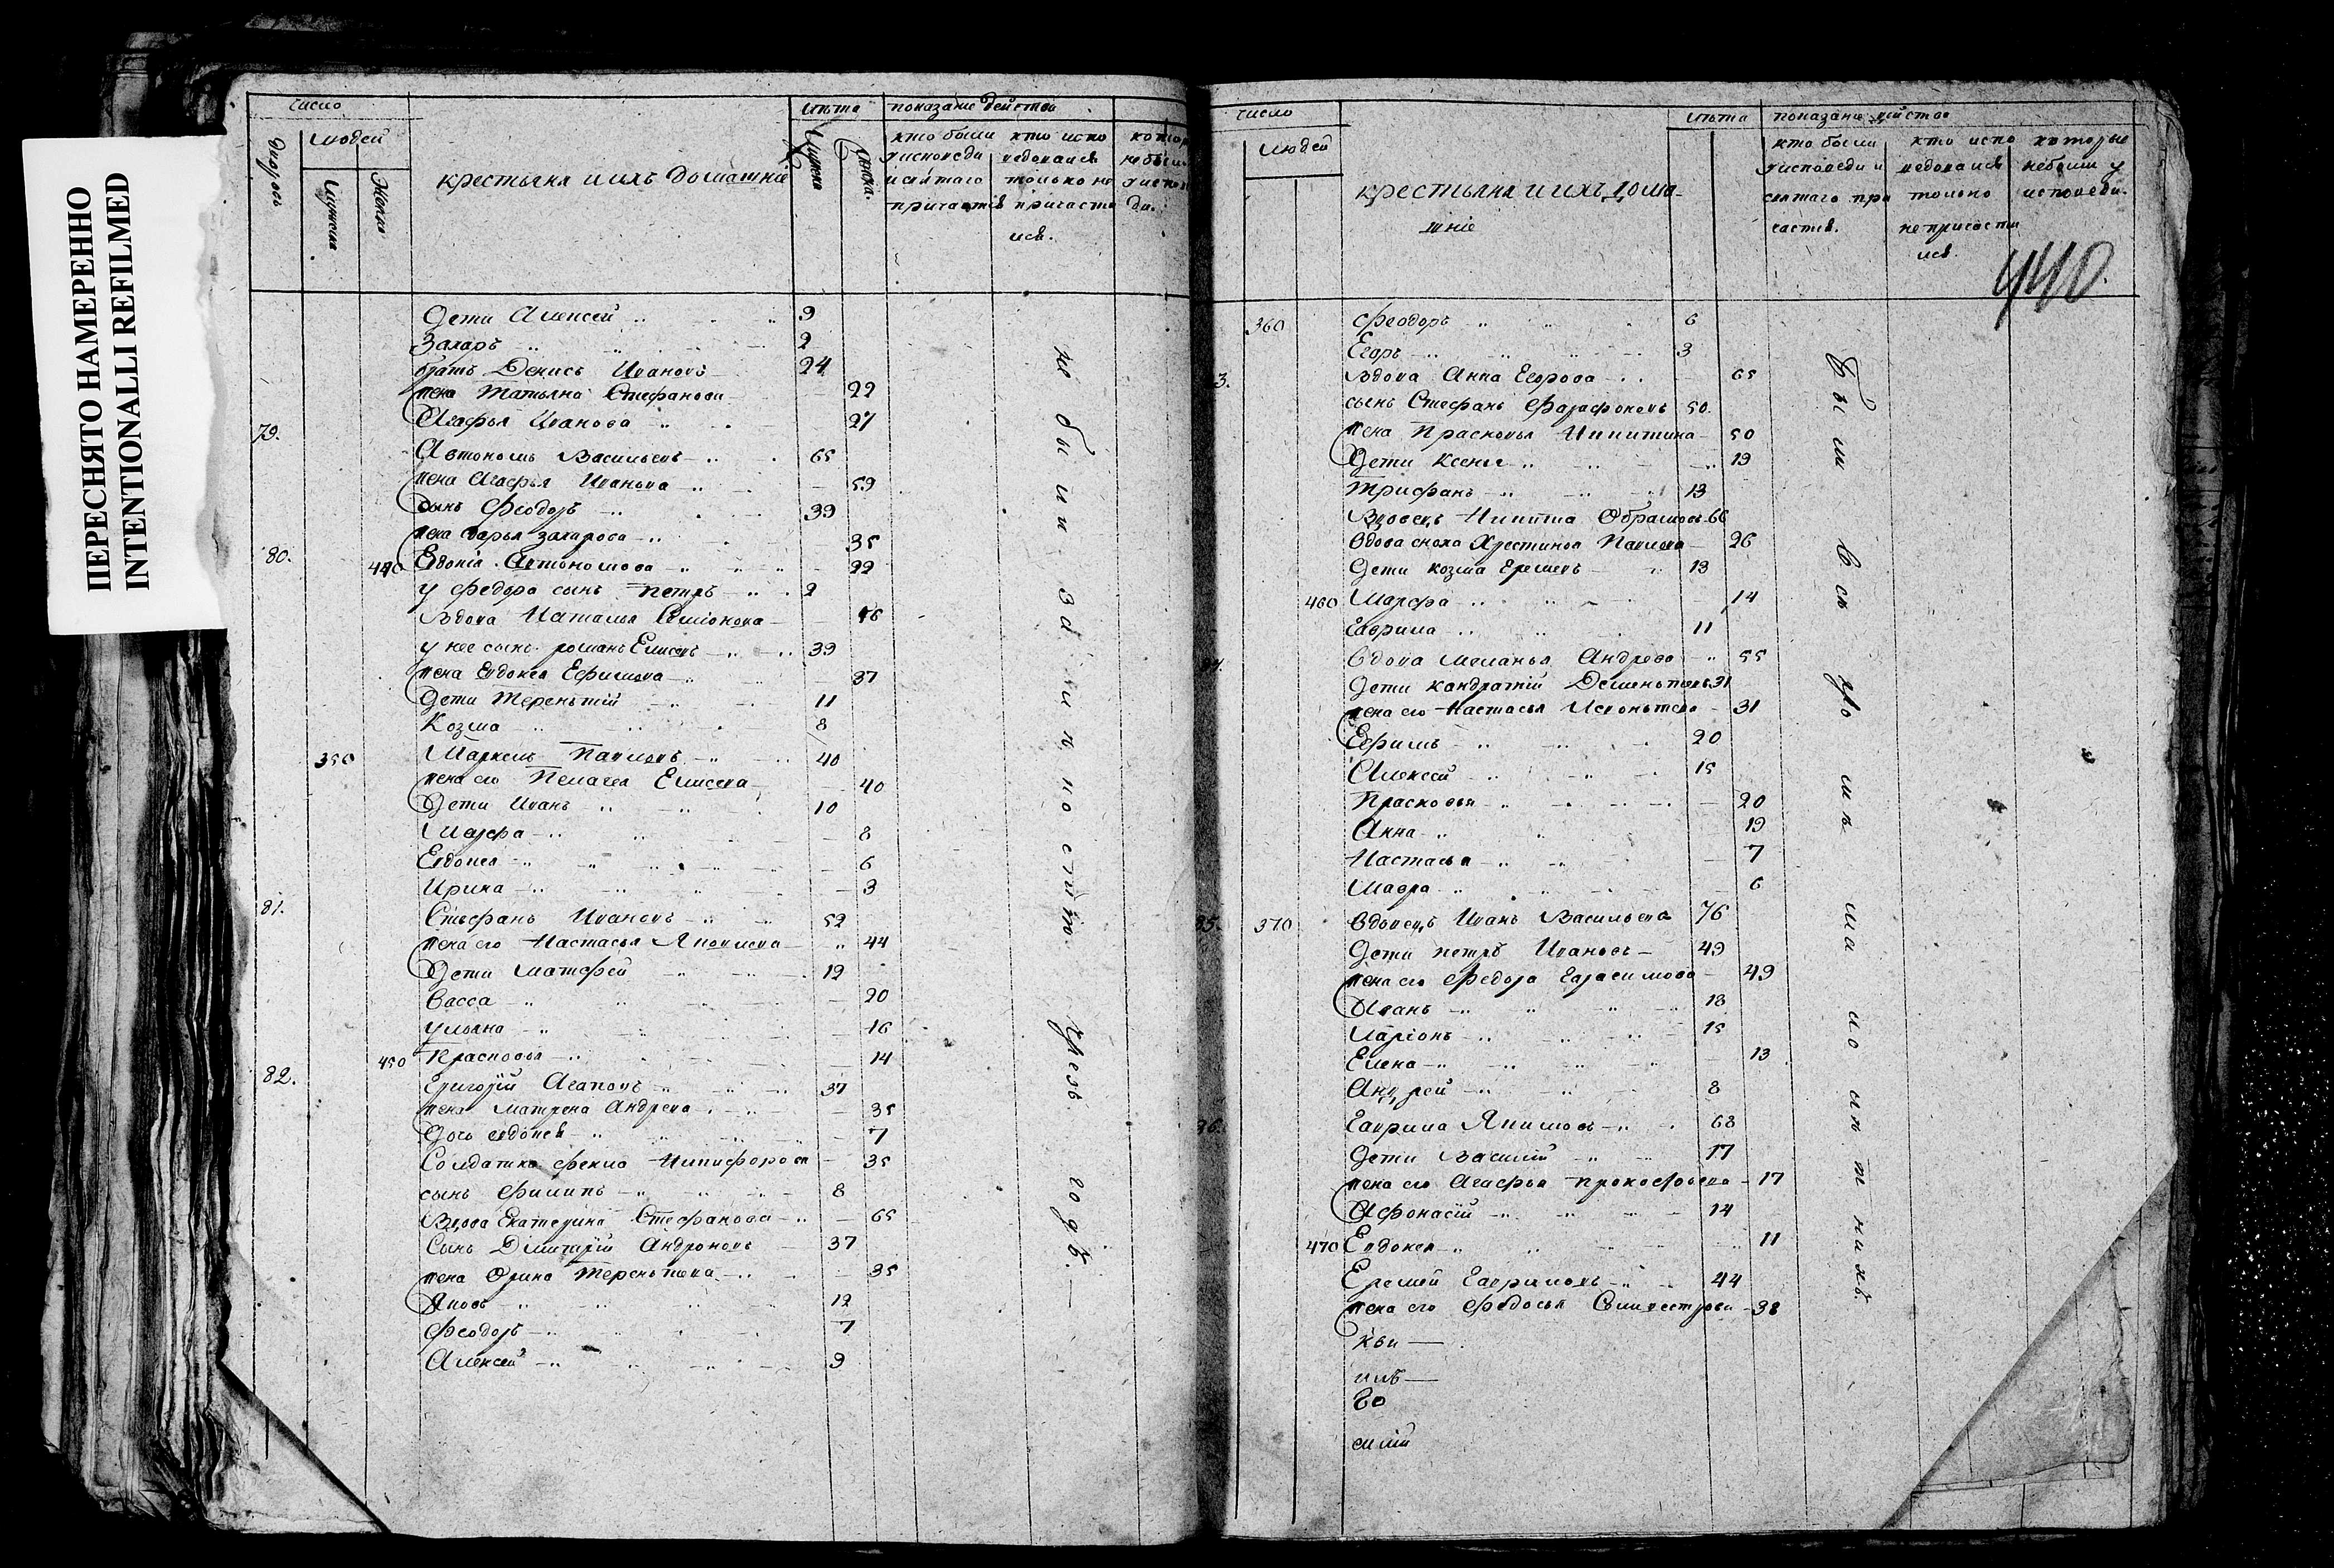 ПЕРЕСНЯТО НАМЕРЕННО
INTENTIONALLI REFILMED
число
людей
дворовъ
мужска
женска
крестьяна и ихъ домашніе
лѣта
мужска
женска
показаніе действа
кто были
у исповеди
и святаго
причастія
кто испо
ведовался
только не
причасти
лся.
Дети Алексей 9
Захаръ 2
братъ Денисъ Ивановъ 24
жена Татьяна Стефанова 22
Агафья Иванова 27
79.
Автономъ Васильевъ 65
жена Агафья Иванова 59
сынъ Феодоръ 39
жена дарья захарова 35
80. 440 Евдокіа Автономова 22
у федора сынъ петръ 2
вдова Наталья Семіонова 76
у нее сынъ романъ Елисеевъ 39
жена Евдокея Ефимова 37
Дети Терентій 11
Козма 8
350 Маркелъ Павловъ 40
жена его Пелагея Елисеева 40
Дети Иванъ 10
Марфа 8
Евдокея 6
Ирина 3
81.
Стефанъ Ивановъ 52
жена его Настасья Яковлева 44
Дети Матфей 12
Васса 20
ульяна 16
450 Прасковья 14
82.
Григорій Агаповъ 37
жена Матрена Андреева 35
Дочь евдокея 7
Солдатка фекла Никифорова 35
сынъ филипъ 8
Вдова Екатерина Стефанова 65
Сынъ Дмитрій Андроновъ 37
жена Орина Терентьева 35
Яковъ 12
феодоръ 7
Алексей 9
не были за инностію чрезъ годъ.
число
людей
крестьяна и ихъ дома-
шніе
лѣта
показаніе действа
кто были
у исповеди и
святаго при
частія.
кто испо
ведовался
только
не причасти
лся.
которые
небыли у
исповеди.
440.
360 феодоръ 6
Егоръ 3
3. вдова Анна Егорова 65
сынъ Стефанъ Фарафоновъ 50
жена Прасковья Никитина 50
Дети Ксенья 19
Трифанъ 13
Вдовецъ Никита Обрамовъ 66
вдова сноха Хрестинья Павлова 26
Дети козма Еремеевъ 13
460 Марфа 14
Гаврила 11
84. вдова меланья Андреева 55
Дети кандратій Дементьевъ 31
жена его Настасья Леонтьева 31
Ефимъ 20
Алексей 15
Прасковья 20
Анна 19
Настасья 7
Мавра 6
85. 370 вдовецъ Иванъ Васильева 76
Дети петръ Ивановъ 49
жена его федора Гарасимова 49
Иванъ 18
Ларіонъ 15
Елена 13
Андрей 8
86. Гаврила Якимовъ 68
Дети Василій 17
жена его Агафья прокофьева 17
Афонасій 14
470 Евдокея 11
Еремей Гавриловъ 44
жена его федосья Сильвестрова 38